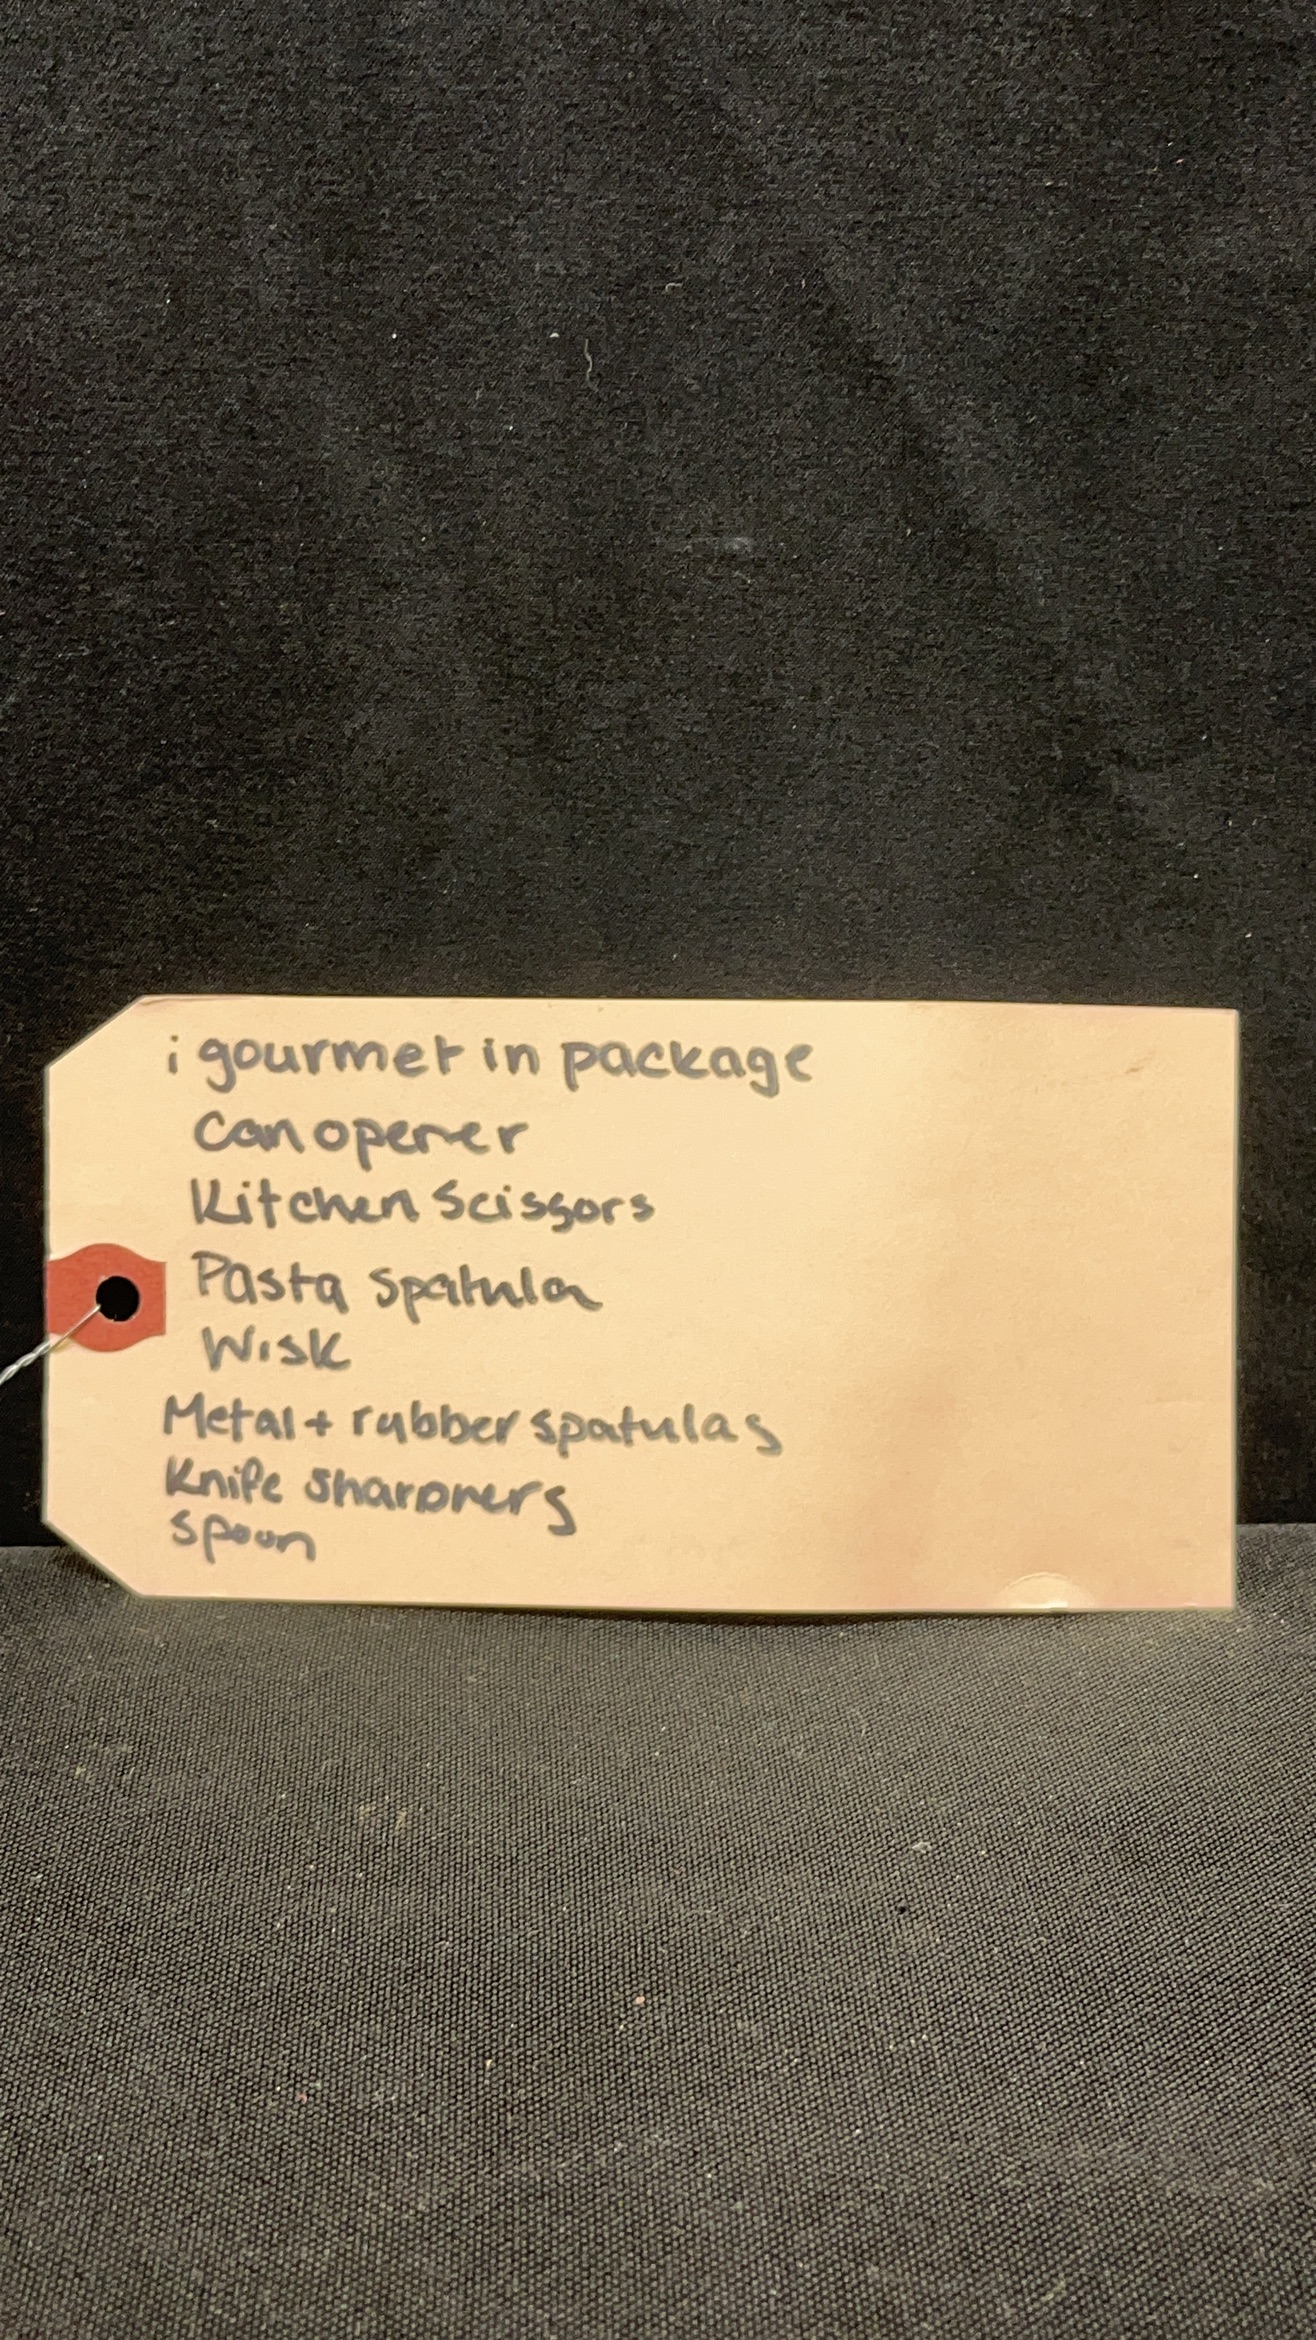 i gourmet in package
Can opener
Kitchen Scissors
Pasta Spatula
Wisk
Metal + rubber spatulas
Knife sharpners
spoon